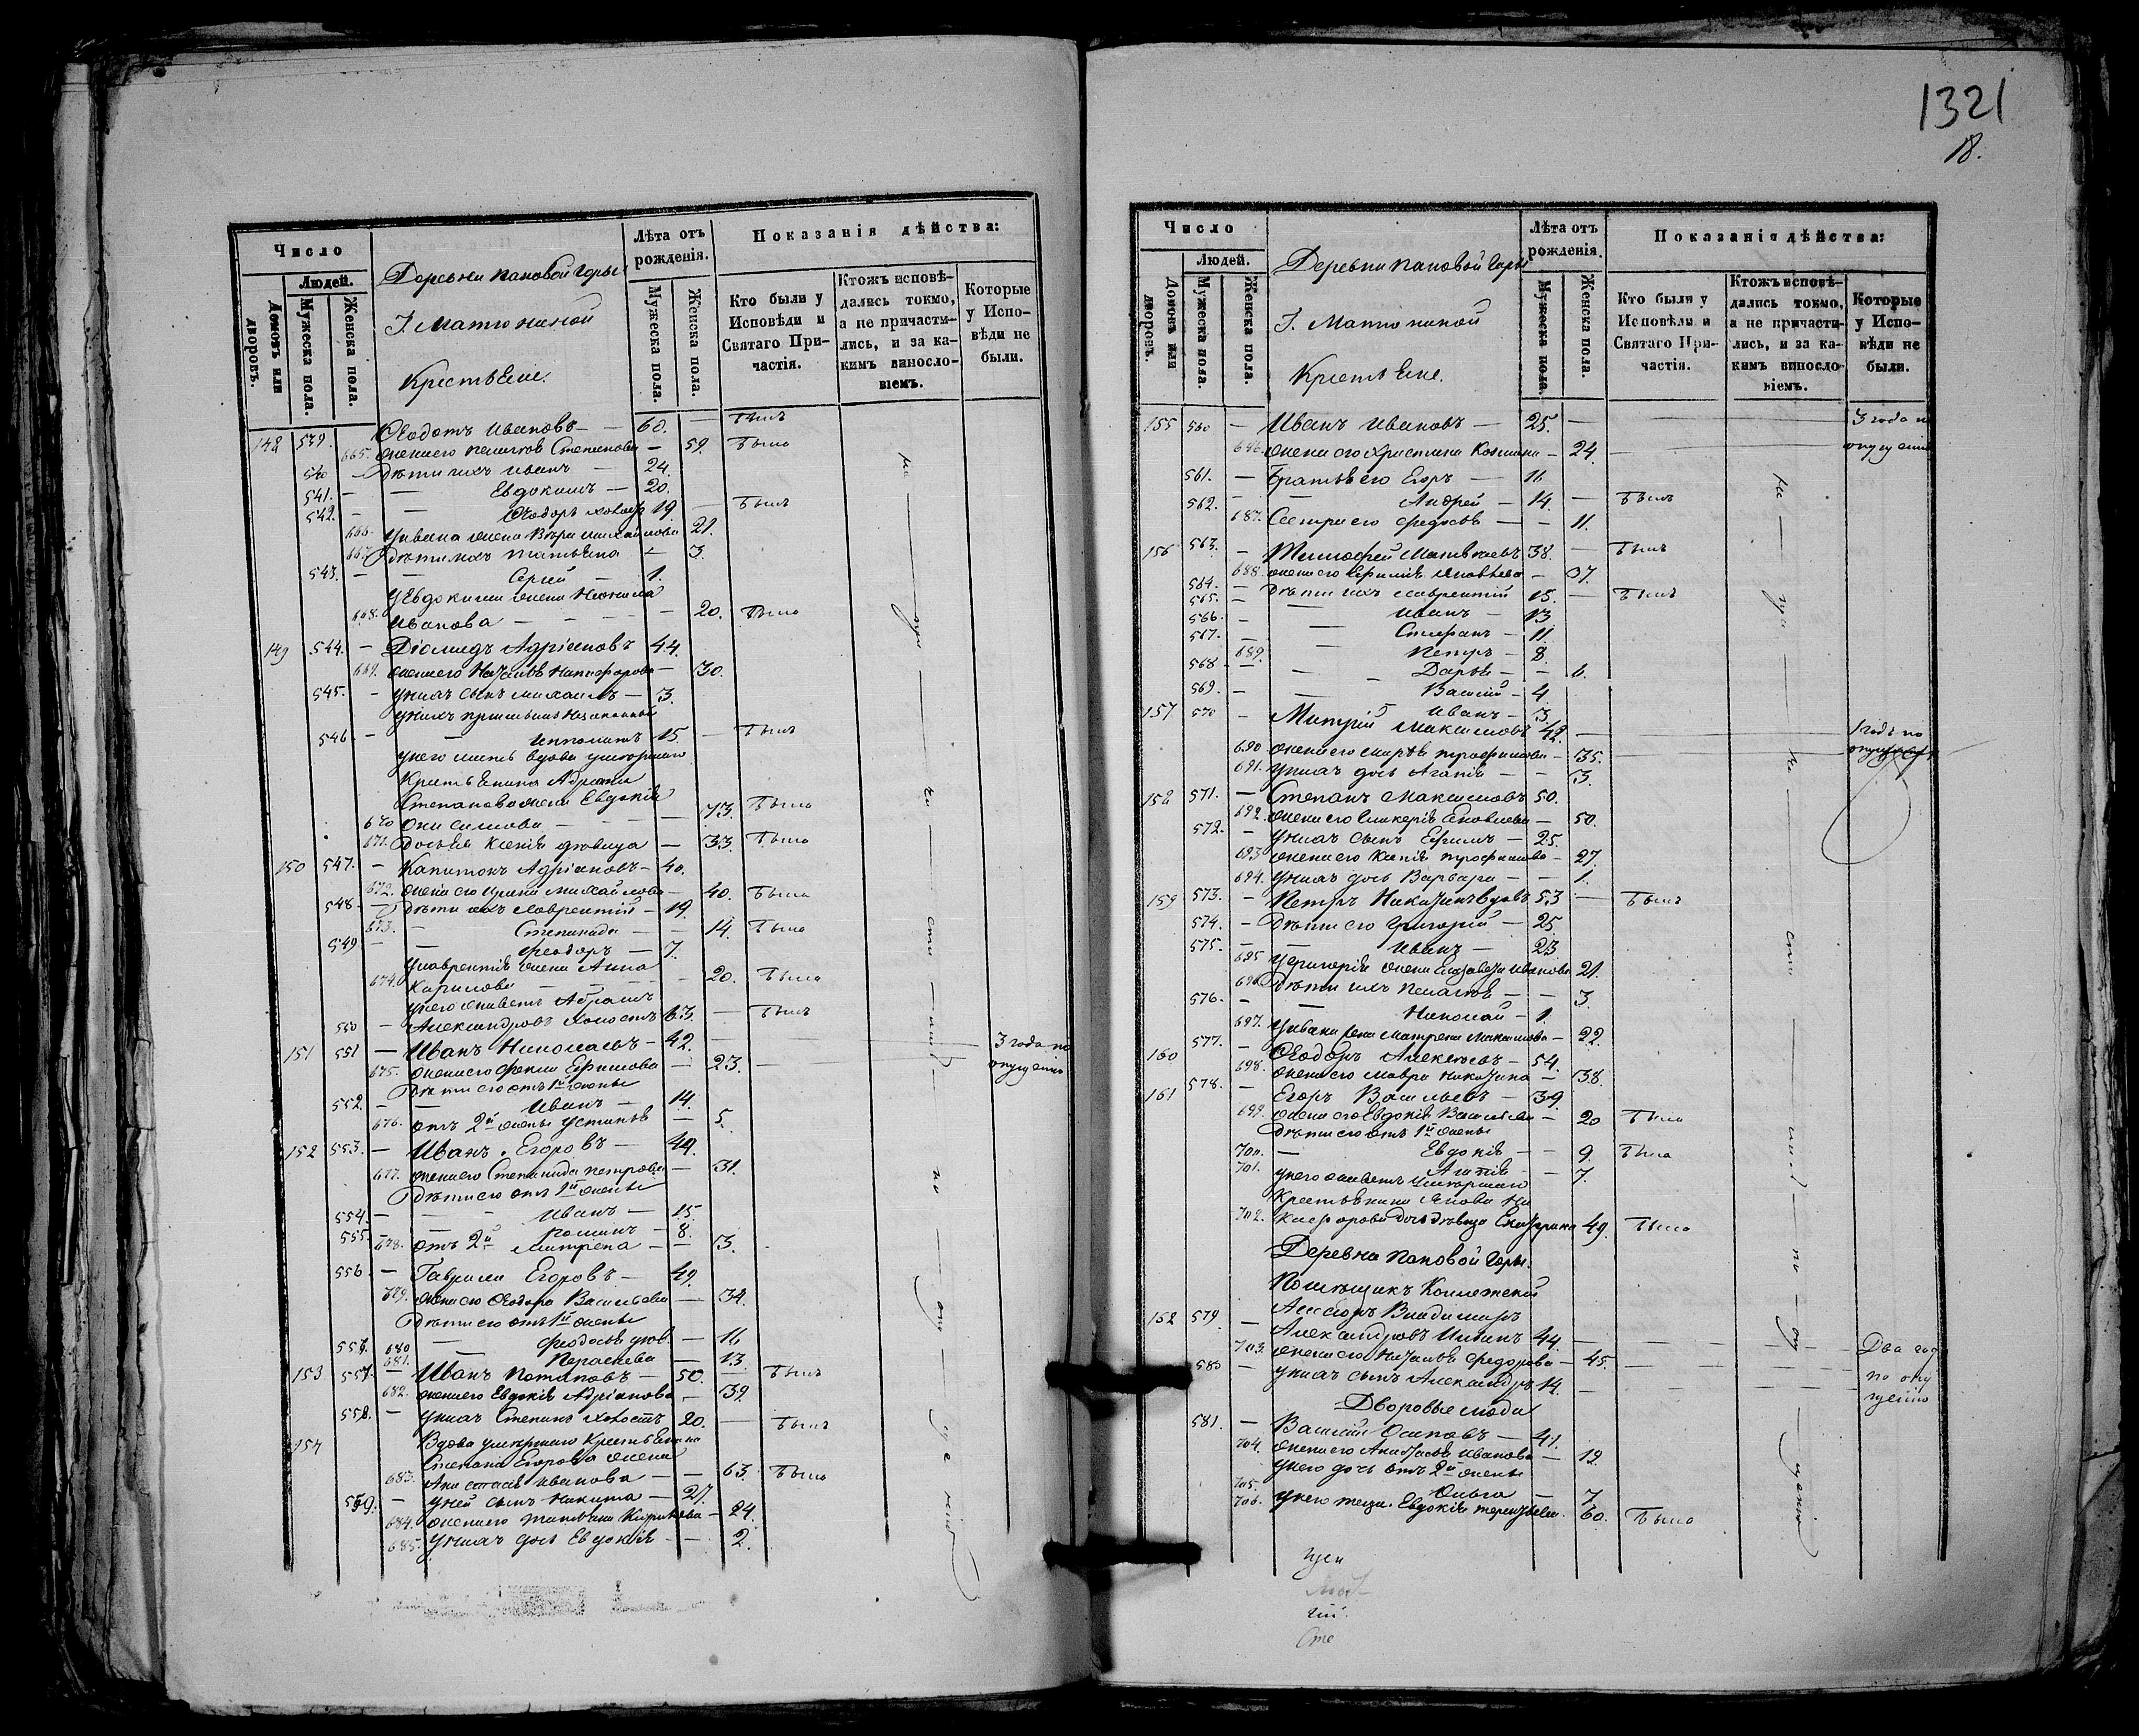 1321
18.
Число
Людей.
Домовъ или дворовъ.
Мужеска пола.
Женска пола.
Деревни Пановой Горы
Г. Матюниной
Крестьяне.
Лѣта отъ рожденія.
Мужеска пола.
Женска пола.
Показанія дѣйства:
Кто были у Исповѣди и Святаго Причастія.
Ктожъ исповѣдались токмо, а не причастились, и за какимъ винословіемъ.
Которые у Исповѣди не были.
148 539. Ѳеодотъ Ивановъ — 60. — Былъ
665. жена его Пелагея Степанова — 59. Была
540 — Дѣти ихъ Иванъ — 24.
541. — — Евдокимъ — 20.
542. — — Ѳеодоръ холостъ 19. — Былъ
666. У Ивана жена Вѣра Михайлова 21.
667. Дѣти ихъ Татьяна — 3.
543. — — Сергей — 1.
У Евдокима жена
668. Иванова — — 20. Была
149 544. — Діомидъ Адріановъ 44.
669. жена его Наталья Никифорова — 30.
545. — У нихъ сынъ Михаилъ — 3.
У нихъ незаконный
546 — — Ипполитъ 15. — Былъ
У него мать вдова умершаго
Крестьянина Адріана
Степанова жена Евдокія
670 Онисимова — — 73. Была
671. Дочь ея Ксенія дѣвица — 33. Была
150 547. — Капитонъ Адріановъ — 40.
672. жена его Ирина Михайлова — 40. Была
548. — Дѣти ихъ Лаврентій — 19.
673. — Степанида — — 14. Была
549 — — Ѳеодоръ — 7.
У Лаврентія жена Анна
674. Кирилова — — 20. Была
У него живетъ Абрамъ
550 — Александровъ холостъ 63. — Былъ
151 551 — Иванъ Николаевъ — 42. — 3 года по
675. жена его Ефимова — 23. — опущенію
Дѣти его отъ 1й жены
552. — — Иванъ — 14.
676. отъ 2й жены Устинья — 5.
152 553. — Иванъ Егоровъ — 49.
677. жена его Степанида Петрова — 31.
Дѣти его отъ 1й жены
554. — — Иванъ — 15.
555. — Романъ — 8.
678. отъ 2й Матрена — — 3.
556. — Гаврила Егоровъ — 49.
679. жена его Ѳеодора Васильева — 34.
Дѣти его отъ 1й жены
680 — Ѳеодосья дѣв. — 16
681. — Параскева — 13.
153 557. — Иванъ Потаповъ — 50. — Былъ
682. жена его Евдокія Адріанова — 39.
558. — У нихъ Степанъ холостъ 20. — Былъ
154 Вдова умершаго Крестьянина
Степана Егорова жена
683. Анастасія Иванова — — 63. Была
559. — У ней сынъ Никита — 27.
684. жена его Татьяна — 24.
685. У нихъ дочь Евдокія — — 2.
Число
Людей.
Домовъ или дворовъ.
Мужеска пола.
Женска пола.
Деревни Пановой Горы
Г. Матюниной
Крестьяне.
Лѣта отъ рожденія.
Мужеска пола.
Женска пола.
Показанія дѣйства:
Кто были у Исповѣди и Святаго Причастія.
Ктожъ исповѣдались токмо, а не причастились, и за какимъ винословіемъ.
Которые у Исповѣди не были.
155 560 — Иванъ Ивановъ — 25. — 3 года по
686. жена его Христина — 24. — опущенію
561. — Братья его Егоръ — 16
562. — — Андрей — 14. — Былъ
687. Сестра его Ѳедосья — — 11.
156 563. — Тимофей Матвѣевъ 38. — Былъ
688. жена его Яковлева — 37.
564. — Дѣти ихъ Лаврентій 15. — Былъ
565. — — Иванъ — 13
566. — — Стефанъ — 11.
567. — — Петръ — 8.
689. — — Дарья — — 6.
568 — — Василій — 4.
569. — — Иванъ — 3.
157 570 — Митрій Максимовъ 42. — 1 годъ по
690. жена его Марѳа Трофимова — 35. — опущенію
691. У нихъ дочь Агапія — — 3.
158 571. — Степанъ Максимовъ 50.
692. жена его Гликерія Яковлева — 50.
572. — У нихъ сынъ Ефимъ — 25.
693 жена его Ксенія Трофимова — 27.
694. У нихъ дочь Варвара — — 1.
159 573. — Петръ Никитинъ вдовъ 53 — Былъ
574. — Дѣти его Григорій — 25.
575. — — Иванъ — 23
695 У Григорія жена Елизавета Иванова 21.
696 Дѣти ихъ Пелагея — — 3.
576. — — Николай — 1.
697. У Ивана жена Матрена Максимова — 22.
160 577. — Ѳеодоръ Алексѣевъ — 54.
698. жена его Мавра Никитина — 38.
161 578. — Егоръ Васильевъ — 39.
699. жена его Евдокія Васильева — 20 Была
Дѣти его отъ 1й жены
700. — Евдокія — — 9. Была
701. Агапія — — 7.
У него живетъ умершаго
Крестьянина Якова Ни
702. кифорова дочь дѣвица Екатерина 49. Была
Деревни Пановой Горы.
Помѣщикъ Коллежскій
152 579 — Ассесоръ Владимиръ
Александровъ 44. —
703. жена его Наталья Ѳедорова — 45. — Два год
580 — У нихъ сынъ Александръ 14. — по опу
щенію
Дворовые люди
581. — Василій Осиповъ — 41.
704. жена его Анастасія Иванова — 19.
У него дочь отъ 2й жены
705. Ольга — 7
706. У него теща Евдокія Терентьева. 60. Была